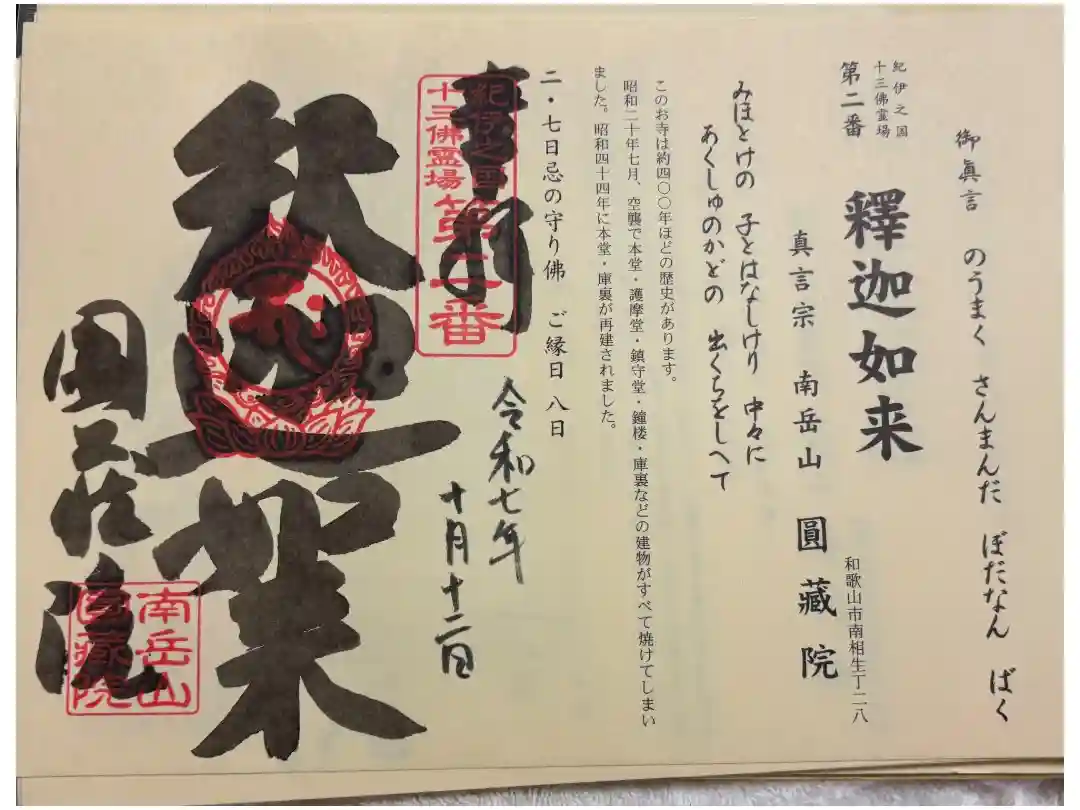 御眞言 のうまく さんまんだ ぼだなん ばく
紀伊之国
十三佛霊場
第二番 釋迦如来
和歌山市南相生丁二八
真言宗 南岳山 圓藏院
みほとけの 子とはなしけり 中々に
あくしゅのかどの 出くちをしへて
このお寺は約四〇〇年ほどの歴史があります。
昭和二十年七月、空襲で本堂・護摩堂・鎮守堂・鐘楼・庫裏などの建物がすべて焼けてしまい
ました。昭和四十四年に本堂・庫裏が再建されました。
二・七日忌の守り佛 ご縁日 八日
令和七年
十月十二日
奉拝
紀伊之国
十三佛霊場
第二番
南岳山
圓藏院